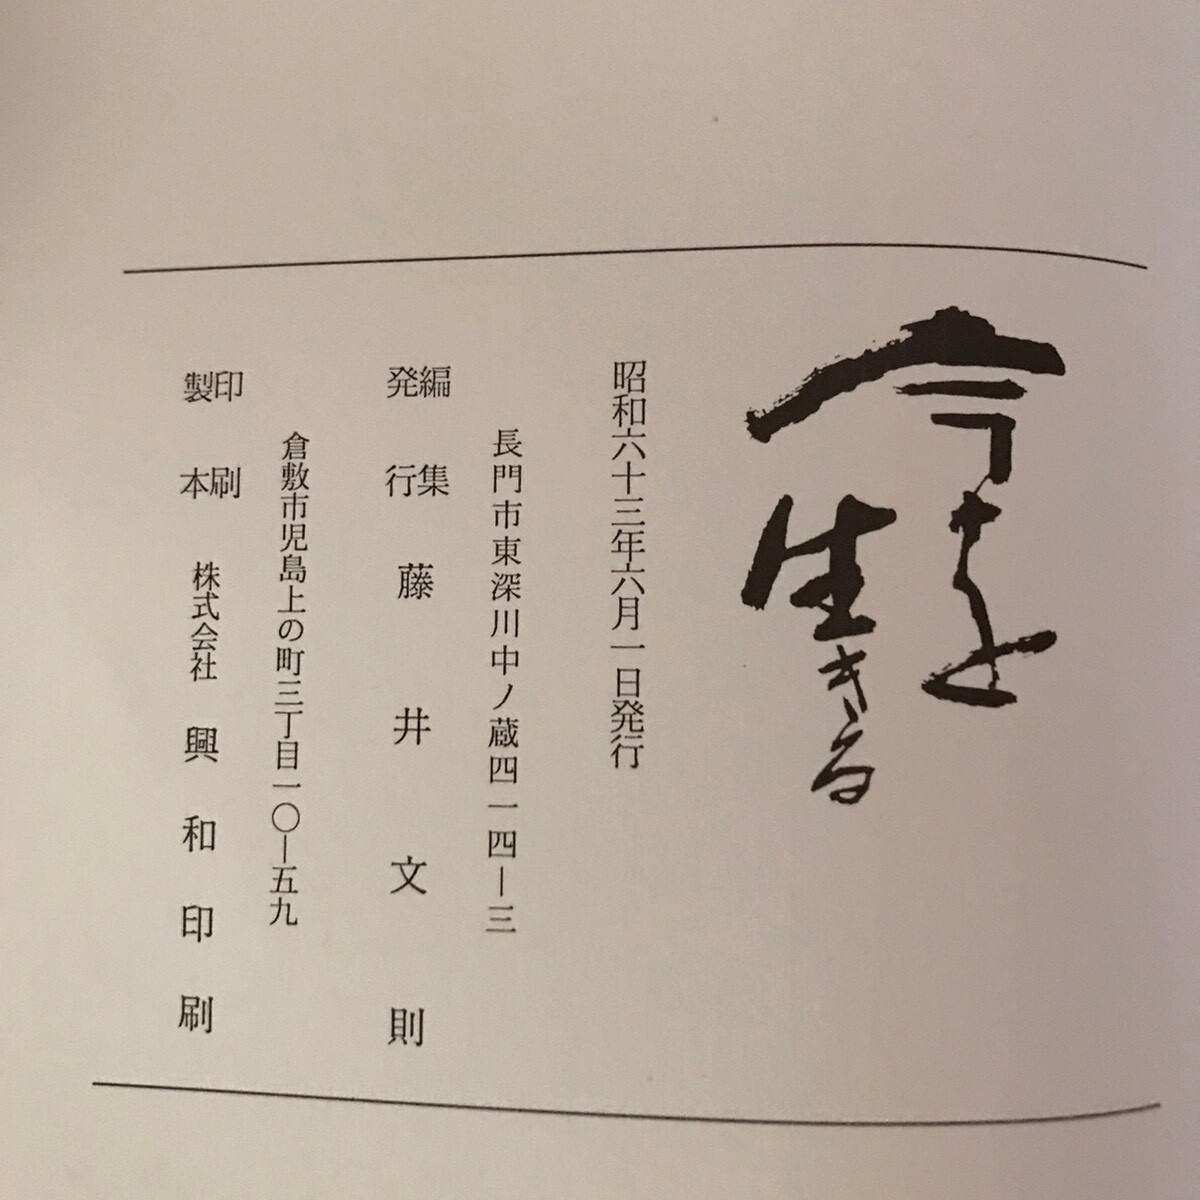 今を
生きる
昭和六十三年六月一日発行
長門市東深川中ノ蔵四一四―三
編集
発行
藤井文則
倉敷市児島上の町三丁目一〇―五九
印刷
製本
株式会社 興和印刷